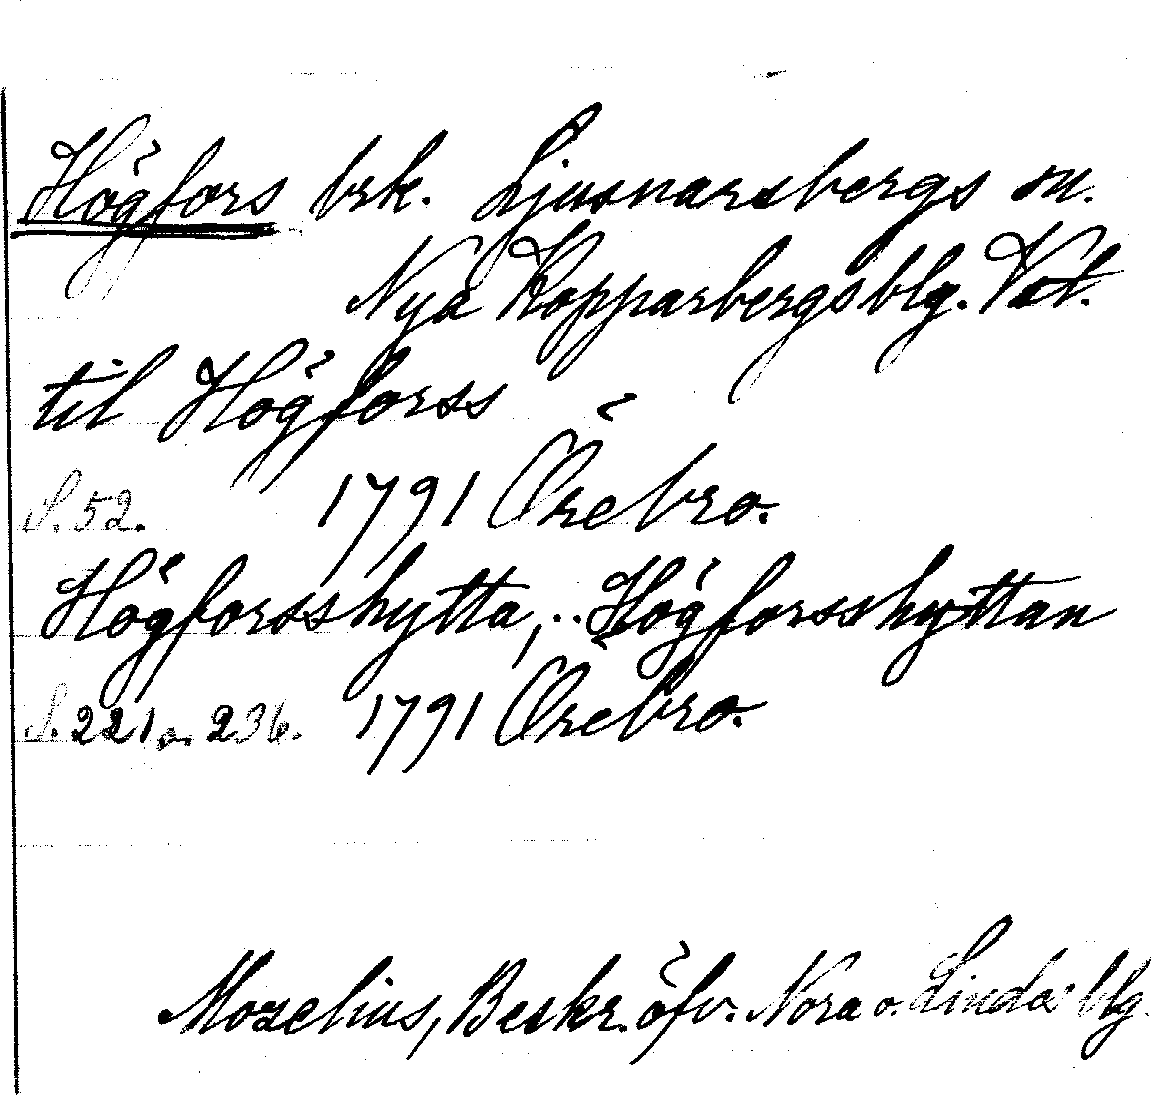 Högfors brk. Ljusnarsbergs sn.
Nya Kopparbergs blg. Vst.
til Högforss
S. 52. 1791 Örebro.
Högforsshytta, .. Högforsshyttan
S. 221 o. 236. 1791 Örebro.
Mozelius, Beskr. öfv. Nora o. Lindes blg.